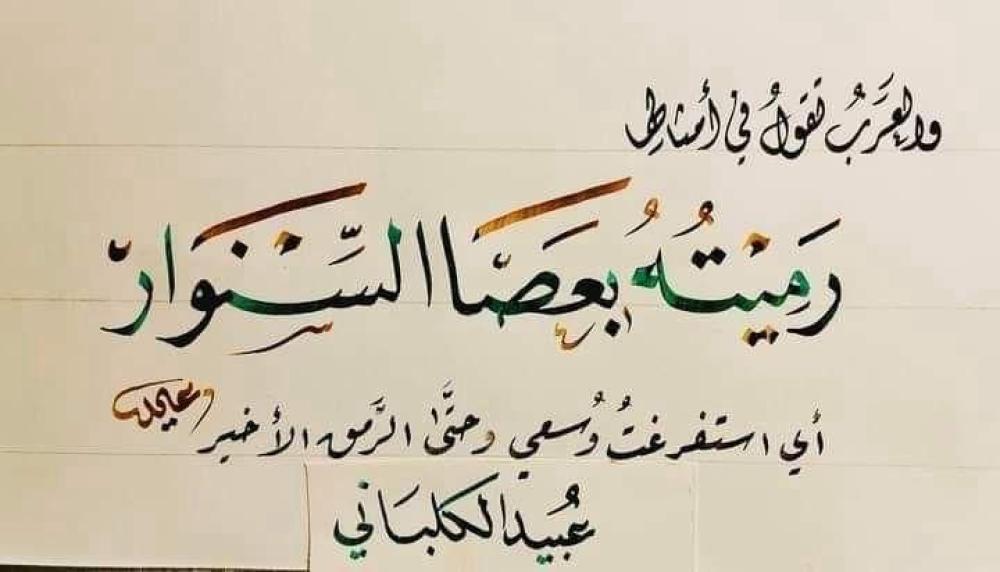 والعَرَبُ تقولُ في أمثالها
رَمَيْتُهُ بعَصَا السِّنْوَارْ
أي استفرغتُ وُسعي وحتَّى الرَّمق الأخير
عُبيد الكلبَاني